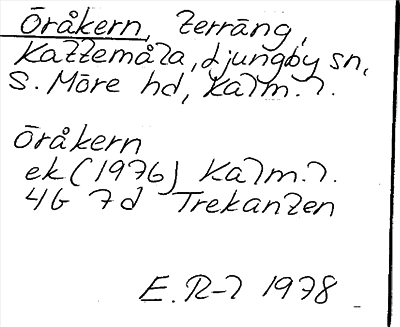 Öråkern, terräng,
Kattemåla, Ljungby sn,
S. Möre hd, Kalm. l.
Öråkern
ek (1976) Kalm. l.
4G 7d Trekanten
E. R-l 1978